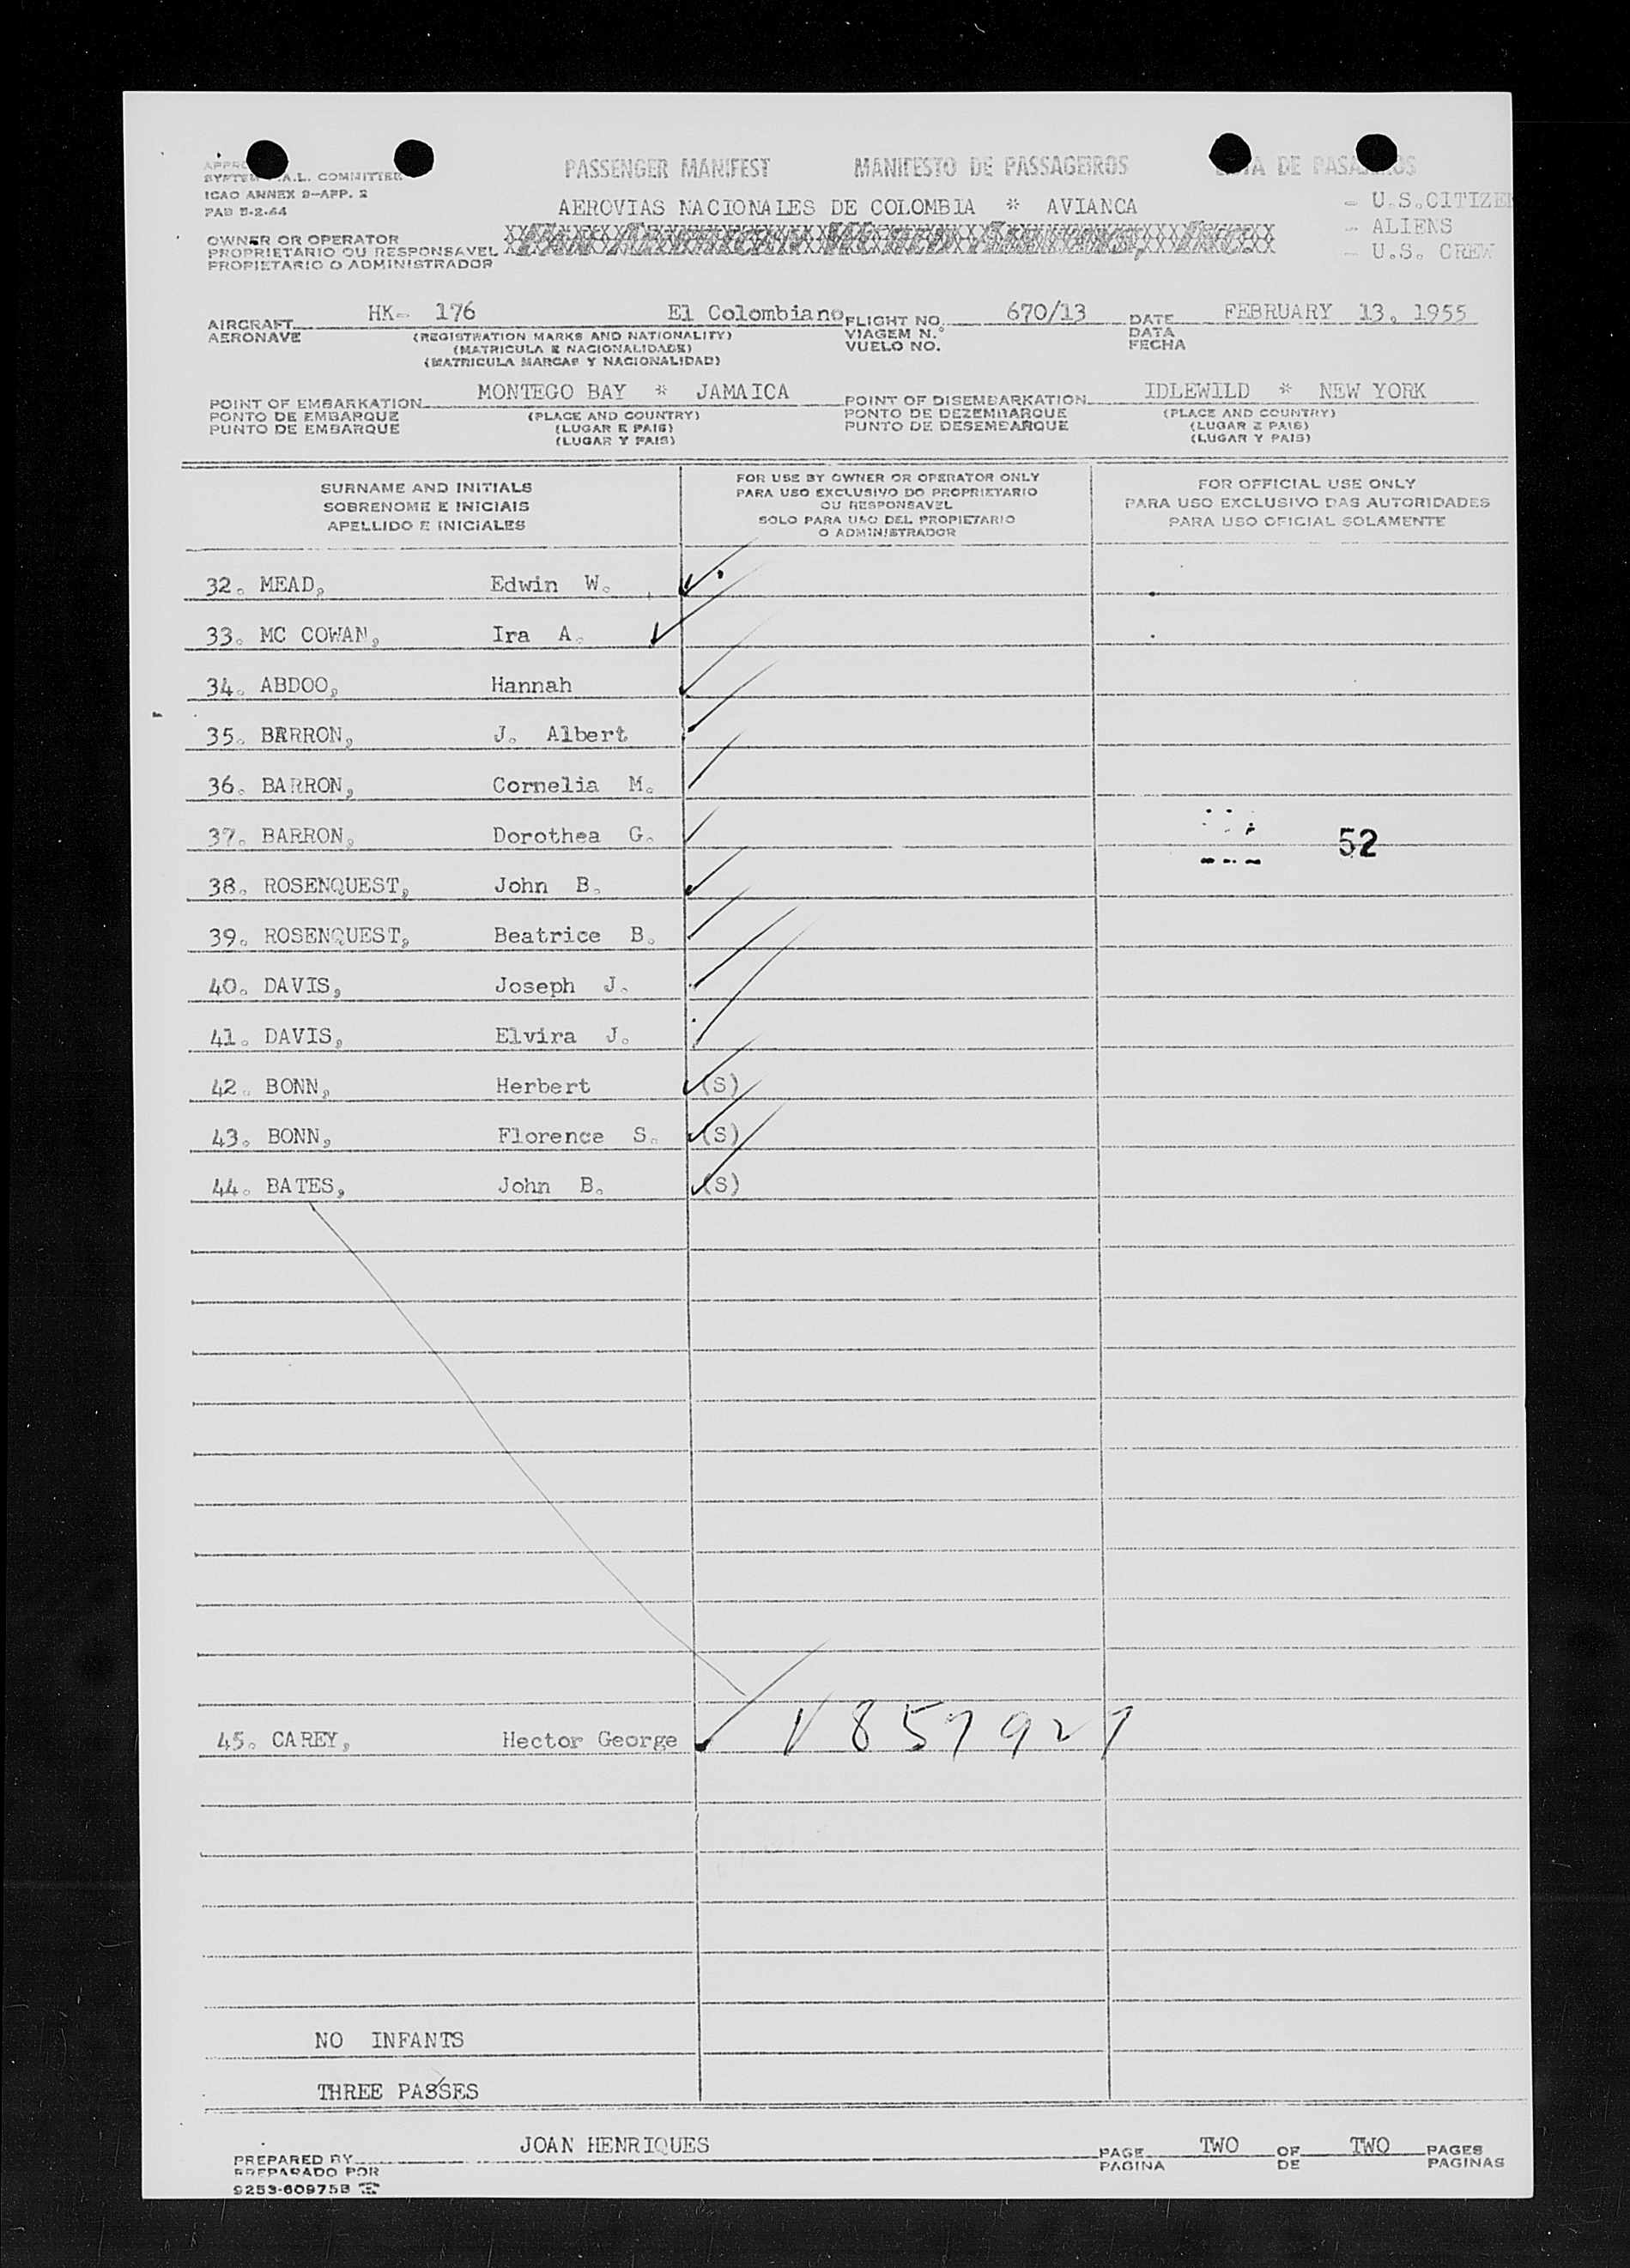 PASSENGER MANIFEST MANIFESTO DE PASSAGEIROS DE
A.L. COMMITTEE
ICAO ANNEX 9-APP. 2
AEROVIAS NACIONALES DE COLOMBIA * AVIANCA
- U.S.CITIZE
- ALIENS
- U.S. CREW
OWNER OR OPERATOR
PROPRIETARIO OU RESPONSAVEL
PROPIETARIO O ADMINISTRADOR
PAN AMERICAN WORLD AIRWAYS, INC.
AIRCRAFT HK- 176 El Colombiano FLIGHT NO. 670/13 DATE FEBRUARY 13, 1955
AERONAVE (REGISTRATION MARKS AND NATIONALITY) VIAGEM N.° DATA
(MATRICULA E NACIONALIDADE) VUELO NO. FECHA
(MATRICULA MARCAS Y NACIONALIDAD)
POINT OF EMBARKATION MONTEGO BAY * JAMAICA POINT OF DISEMBARKATION IDLEWILD * NEW YORK
PONTO DE EMBARQUE (PLACE AND COUNTRY) PONTO DE DEZEMBARQUE (PLACE AND COUNTRY)
PUNTO DE EMBARQUE (LUGAR E PAIS) PUNTO DE DESEMBARQUE (LUGAR E PAIS)
(LUGAR Y PAIS) (LUGAR Y PAIS)
SURNAME AND INITIALS
SOBRENOME E INICIAIS
APELLIDO E INICIALES
FOR USE BY OWNER OR OPERATOR ONLY
PARA USO EXCLUSIVO DO PROPRIETARIO
OU RESPONSAVEL
SOLO PARA USO DEL PROPIETARIO
O ADMINISTRADOR
FOR OFFICIAL USE ONLY
PARA USO EXCLUSIVO DAS AUTORIDADES
PARA USO OFICIAL SOLAMENTE
32. MEAD, Edwin W.
33. MC COWAN, Ira A.
34. ABDOO, Hannah
35. BARRON, J. Albert
36. BARRON, Cornelia M.
37. BARRON, Dorothea G.
52
38. ROSENQUEST, John B.
39. ROSENQUEST, Beatrice B.
40. DAVIS, Joseph J.
41. DAVIS, Elvira J.
42. BONN, Herbert (S)
43. BONN, Florence S. (S)
44. BATES, John B. (S)
45. CAREY, Hector George V857927
NO INFANTS
THREE PASSES
PREPARED BY JOAN HENRIQUES PAGE TWO OF TWO PAGES
PREPARADO POR PAGINA DE PAGINAS
9253-60975B